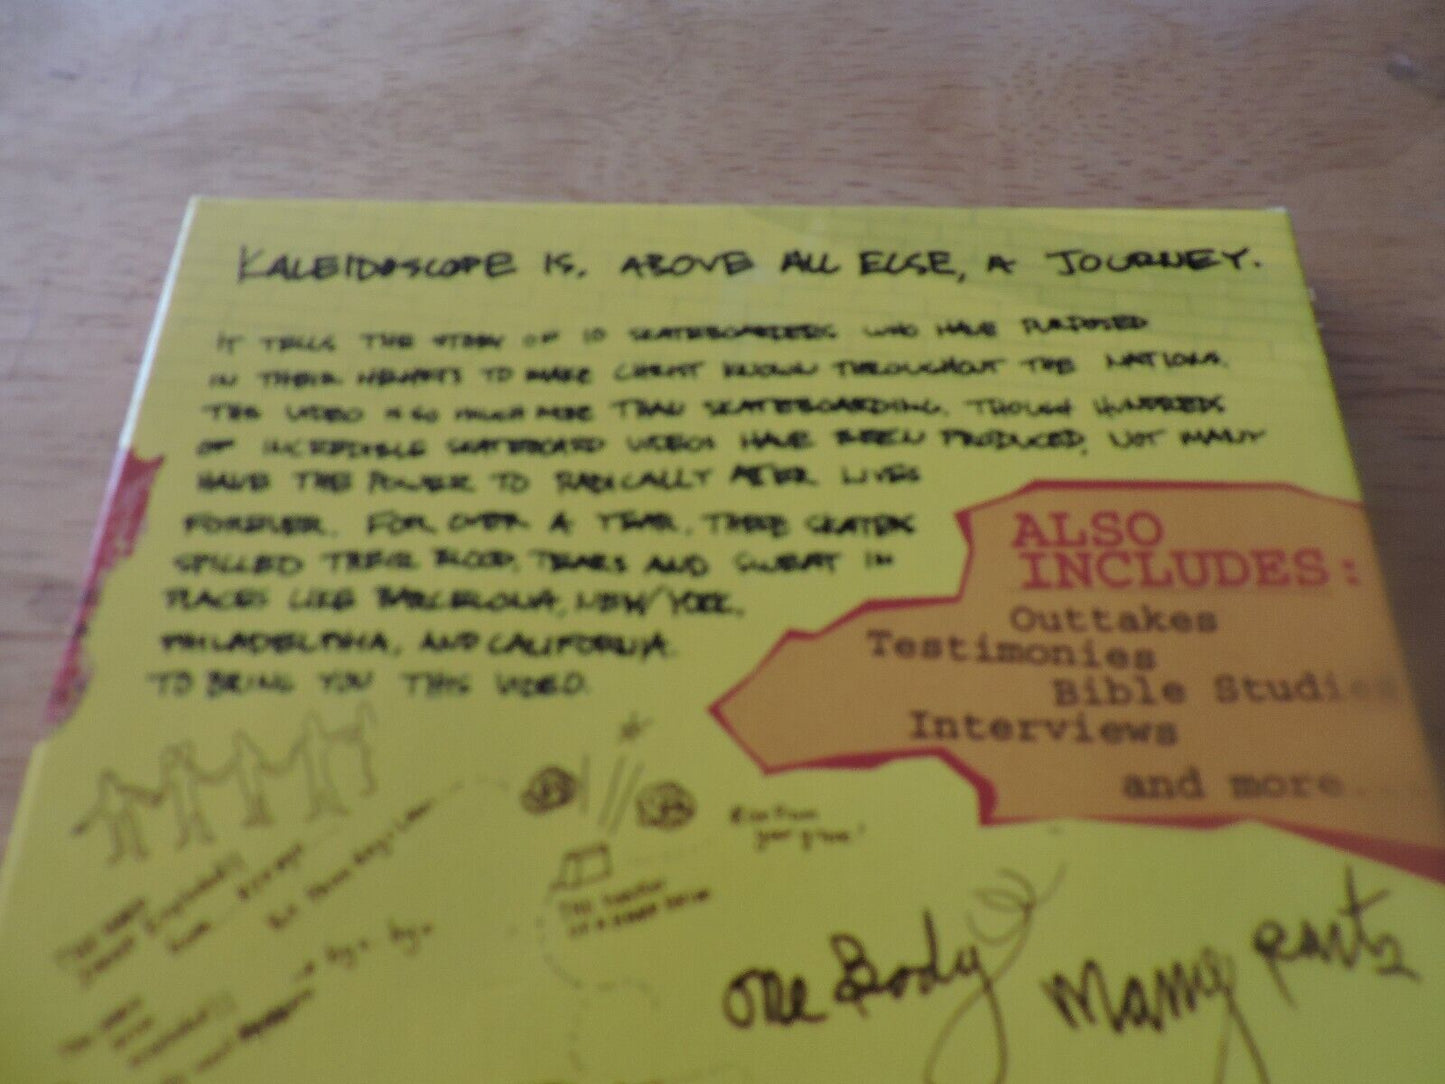 KALEIDOSCOPE IS, ABOVE ALL ELSE, A JOURNEY.
IT TELLS THE STORY OF 10 SKATEBOARDERS WHO HAVE PURPOSED
IN THEIR HEARTS TO MAKE CHRIST KNOWN THROUGHOUT THE NATIONS.
THIS VIDEO IS SO MUCH MORE THAN SKATEBOARDING. THOUGH HUNDREDS
OF INCREDIBLE SKATEBOARD VIDEOS HAVE BEEN PRODUCED, NOT MANY
HAVE THE POWER TO RADICALLY ALTER LIVES
FOREVER. FOR OVER A YEAR, THESE SKATERS
SPILLED THEIR BLOOD, TEARS AND SWEAT IN
PLACES LIKE BARCELONA, NEW YORK,
PHILADELPHIA, AND CALIFORNIA.
TO BRING YOU THIS VIDEO.
ALSO
INCLUDES:
Outtakes
Testimonies
Bible Studies
Interviews
and more...
One Body
Many parts